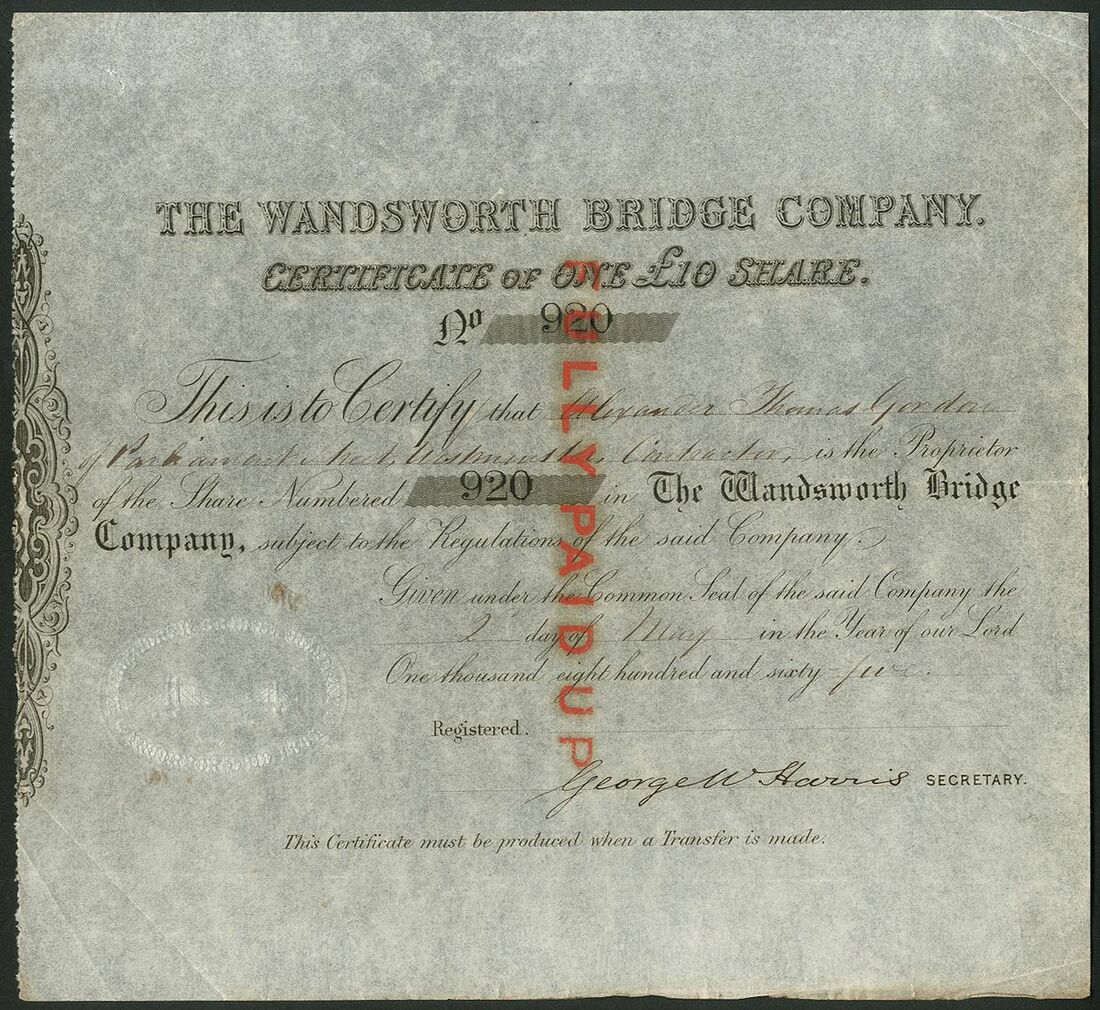 THE WANDSWORTH BRIDGE COMPANY.
CERTIFICATE OF ONE £10 SHARE.
No 920
This is to Certify that Alexander Thomas Gordon
of Parliament Street, Westminster, Contractor, is the Proprietor
of the Share Numbered 920 in The Wandsworth Bridge
Company, subject to the Regulations of the said Company.
Given under the Common Seal of the said Company the
2 day of May in the Year of our Lord
One thousand eight hundred and sixty-
Registered.
George W Harris SECRETARY.
This Certificate must be produced when a Transfer is made.
FULLY PAID UP